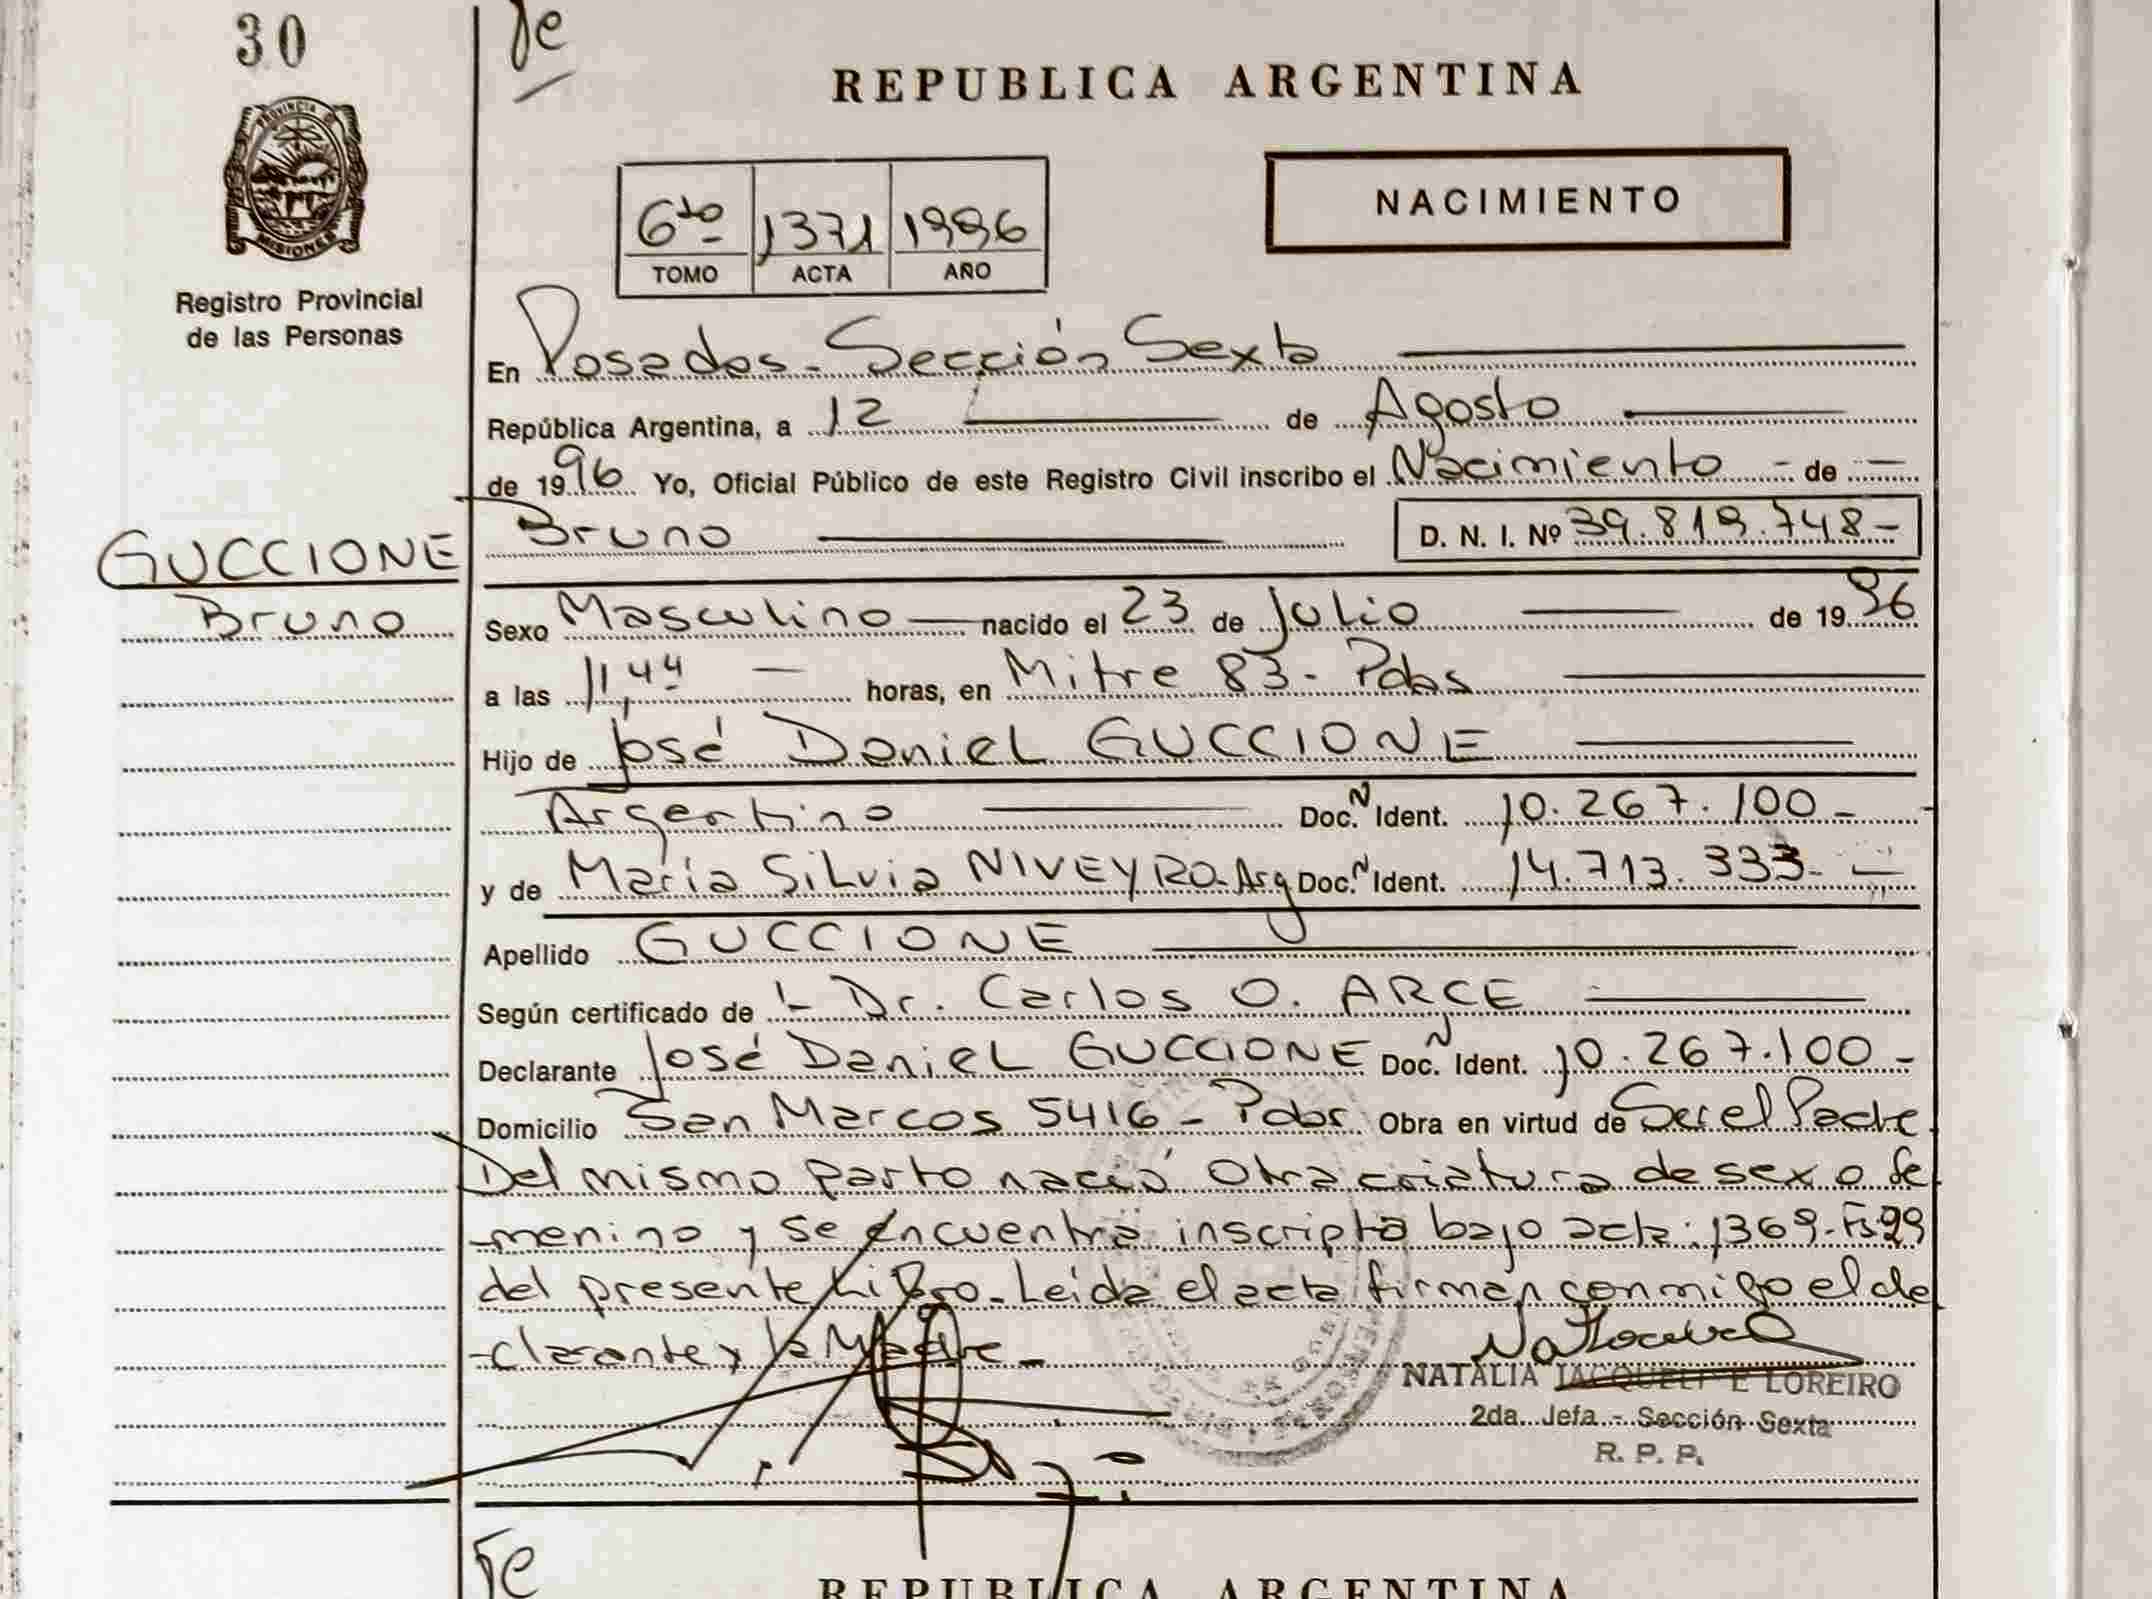 30
REPUBLICA ARGENTINA
PROVINCIA DE
MISIONES
Registro Provincial
de las Personas
6to 1371 1996
TOMO ACTA AÑO
NACIMIENTO
En Posadas - Sección Sexta
República Argentina, a 12 de Agosto
de 1996 Yo, Oficial Público de este Registro Civil inscribo el Nacimiento - de -
Bruno D. N. I. Nº 39.819.748-
GUCCIONE
Bruno
Sexo Masculino nacido el 23 de Julio de 1996
a las 11,44 horas, en Mitre 83 - Pdas
Hijo de José Daniel GUCCIONE
Argentino Doc. N Ident. 10.267.100-
y de María Silvia NIVEYRO-Arg Doc. N Ident. 14.713.333-
Apellido GUCCIONE
Según certificado de l- Dr. Carlos O. ARCE
Declarante José Daniel GUCCIONE Doc. N Ident. 10.267.100-
Domicilio San Marcos 5416 - Pdas Obra en virtud de Ser el Padre
Del mismo parto nació Otra criatura de sexo fe
-menino y se encuentra inscripta bajo acta: 1369-Fs 29
del presente Libro. Leída el acta firman conmigo el de
-clarante y la Madre -
NATALIA JACQUELINE LOREIRO
2da. Jefa - Sección Sexta
R. P. P.
REPUBLICA ARGENTINA